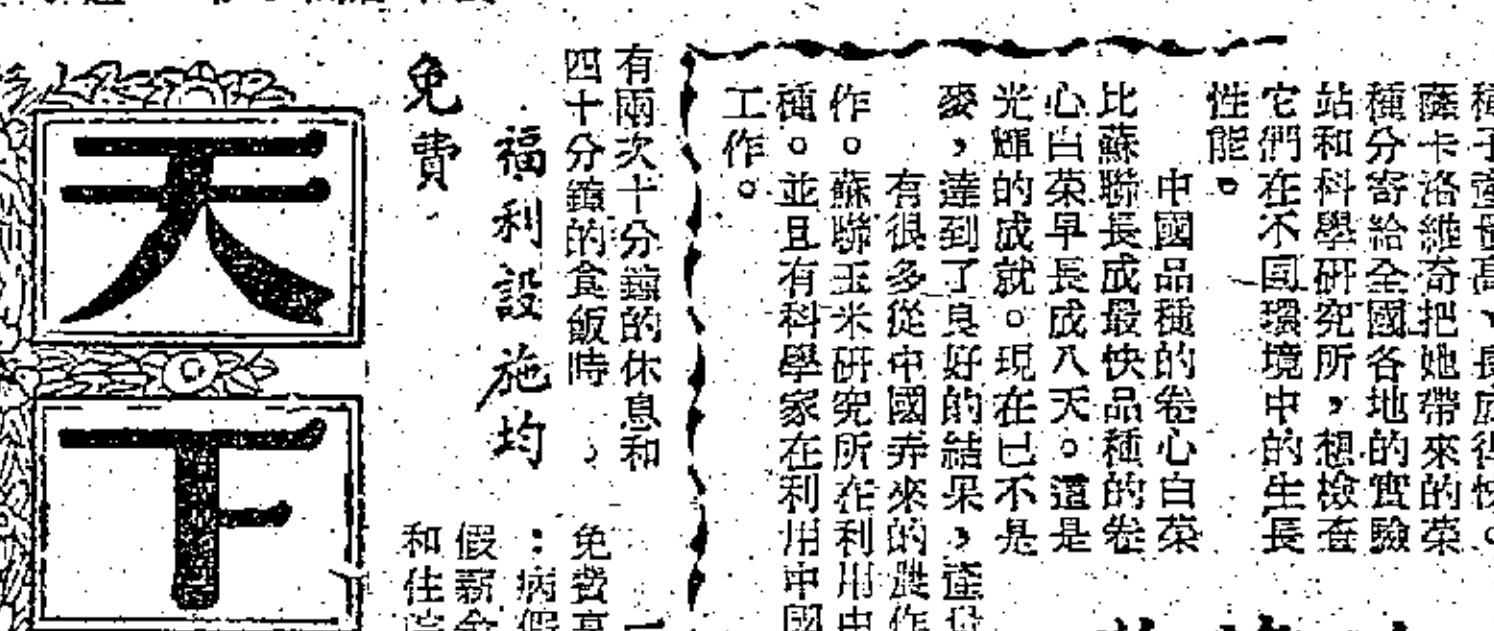 種子產量高、長成得快。
薩卡洛維奇把她帶來的菜
種分寄給全國各地的實驗
站和科學研究所，想檢查
它們在不同環境中的生長
性能。
中國品種的卷心白菜
比蘇聯長成最快品種的卷
心白菜早長成八天。這是
光輝的成就。現在已不是
麥，達到了良好的結果，產量
有很多從中國弄來的農作
作。蘇聯玉米研究所在利用中
種。並且有科學家在利用中國
工作。
有兩次十分鐘的休息和
四十分鐘的食飯時，
福利設施均
免費
免費享
：病假
假薪金
和住院
天下